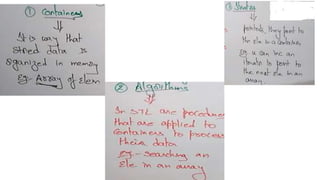 ① Containers
It is way that
stored data is
organized in memory
Eg. Array of Elem
② Algorithms
In STL are procedures
that are applied to
containers to process
their data
Eg - searching an
Ele in an array
pointers, they point to
the Ele in a container
Eg. u can inc an
iterator to point to
the next ele in an
array.